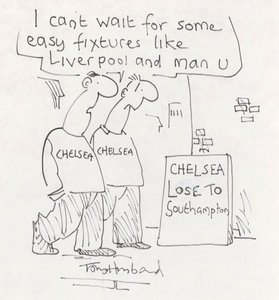 I can't wait for some
easy fixtures like
Liverpool and man U
CHELSEA
CHELSEA
CHELSEA
LOSE TO
Southampton
Tony Husband